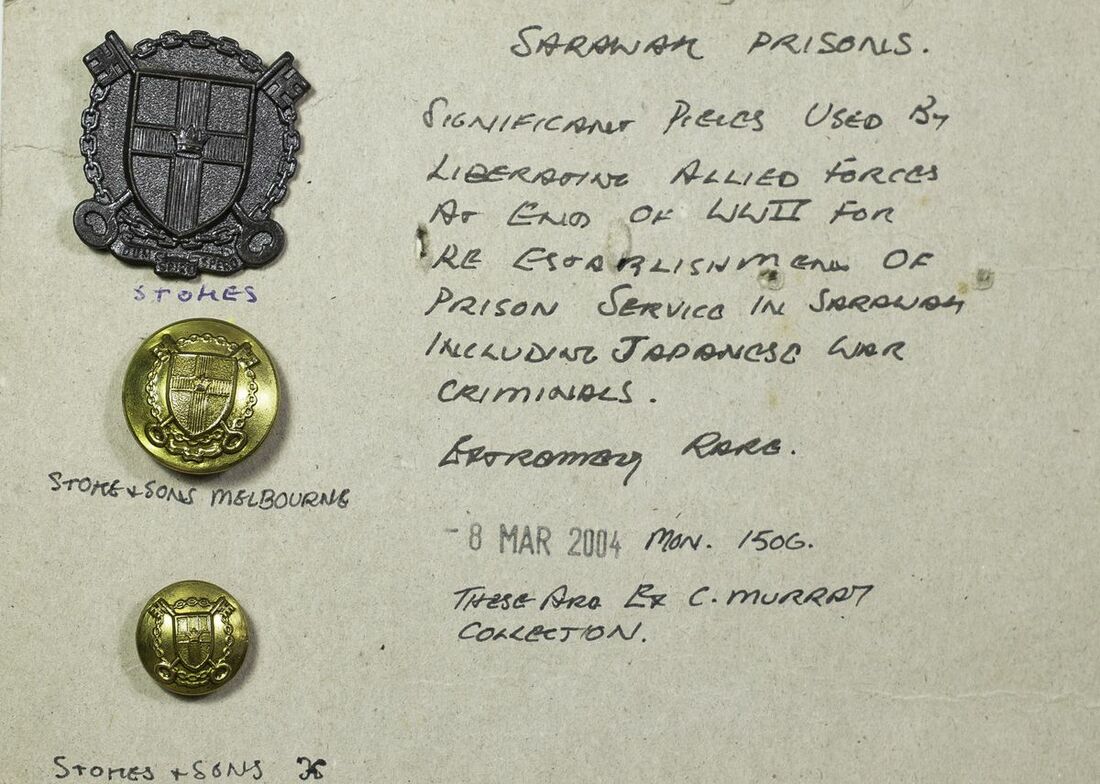 SARAWAK PRISONS.
SIGNIFICANT PIECES USED BY
LIBERATING ALLIED FORCES
AT END OF WWII FOR
RE ESTABLISHMENT OF
PRISON SERVICE IN SARAWAK
INCLUDING JAPANESE WAR
CRIMINALS.
EXTREMELY RARE.
-8 MAR 2004 MON. 150G.
THESE ARE EX C. MURRAY
COLLECTION.
DUM SPIRO SPERO
STOKES
STOKE & SONS MELBOURNE
STOKES & SONS